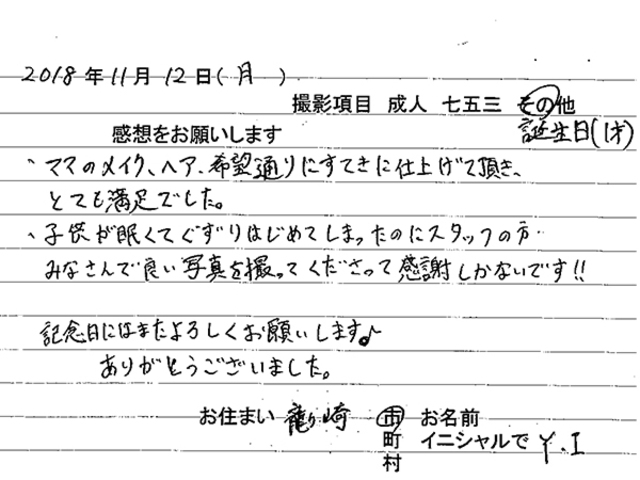 2018年11月12日(月)
撮影項目 成人 七五三 その他
感想をお願いします
誕生日(1才)
、ママのメイク、ヘア、希望通りにすてきに仕上げて頂き、
とても満足でした。
、子供が眠くてぐずりはじめてしまったのにスタッフの方
みなさんで良い写真を撮ってくださって感謝しかないです!!
記念日にはまたよろしくお願いします♪
ありがとうございました。
お住まい 龍ヶ崎 市 お名前
町 イニシャルで Y.I
村